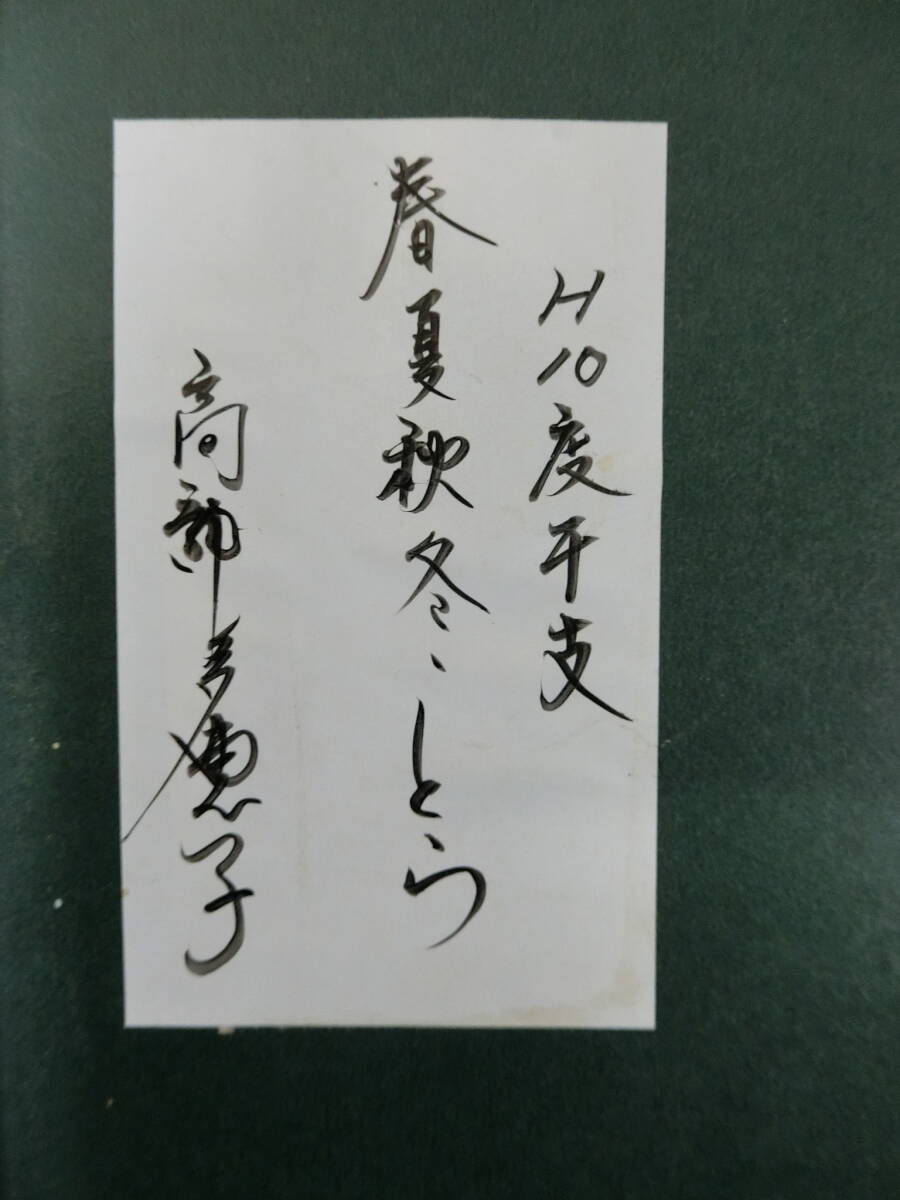 H10度干支
春夏秋冬、とら
高部多恵子